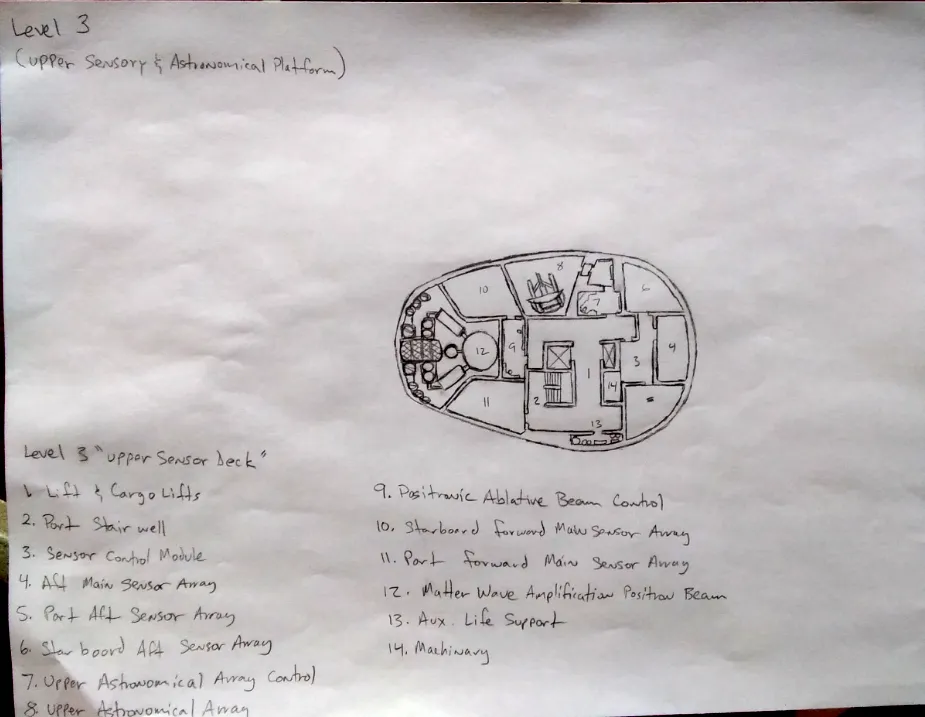 Level 3
(Upper Sensory & Astronomical Platform)
8
10
7
6
12
9
1
3
4
14
11
2
13
Level 3 "Upper Sensor Deck"
1. Lift & Cargo Lifts
2. Port Stair well
3. Sensor Control Module
4. Aft Main Sensor Array
5. Port Aft Sensor Array
6. Starboard Aft Sensor Array
7. Upper Astronomical Array Control
8. Upper Astronomical Array
9. Positronic Ablative Beam Control
10. Starboard forward Main Sensor Array
11. Port forward Main Sensor Array
12. Matter Wave Amplification Positron Beam
13. Aux. Life Support
14. Machinary